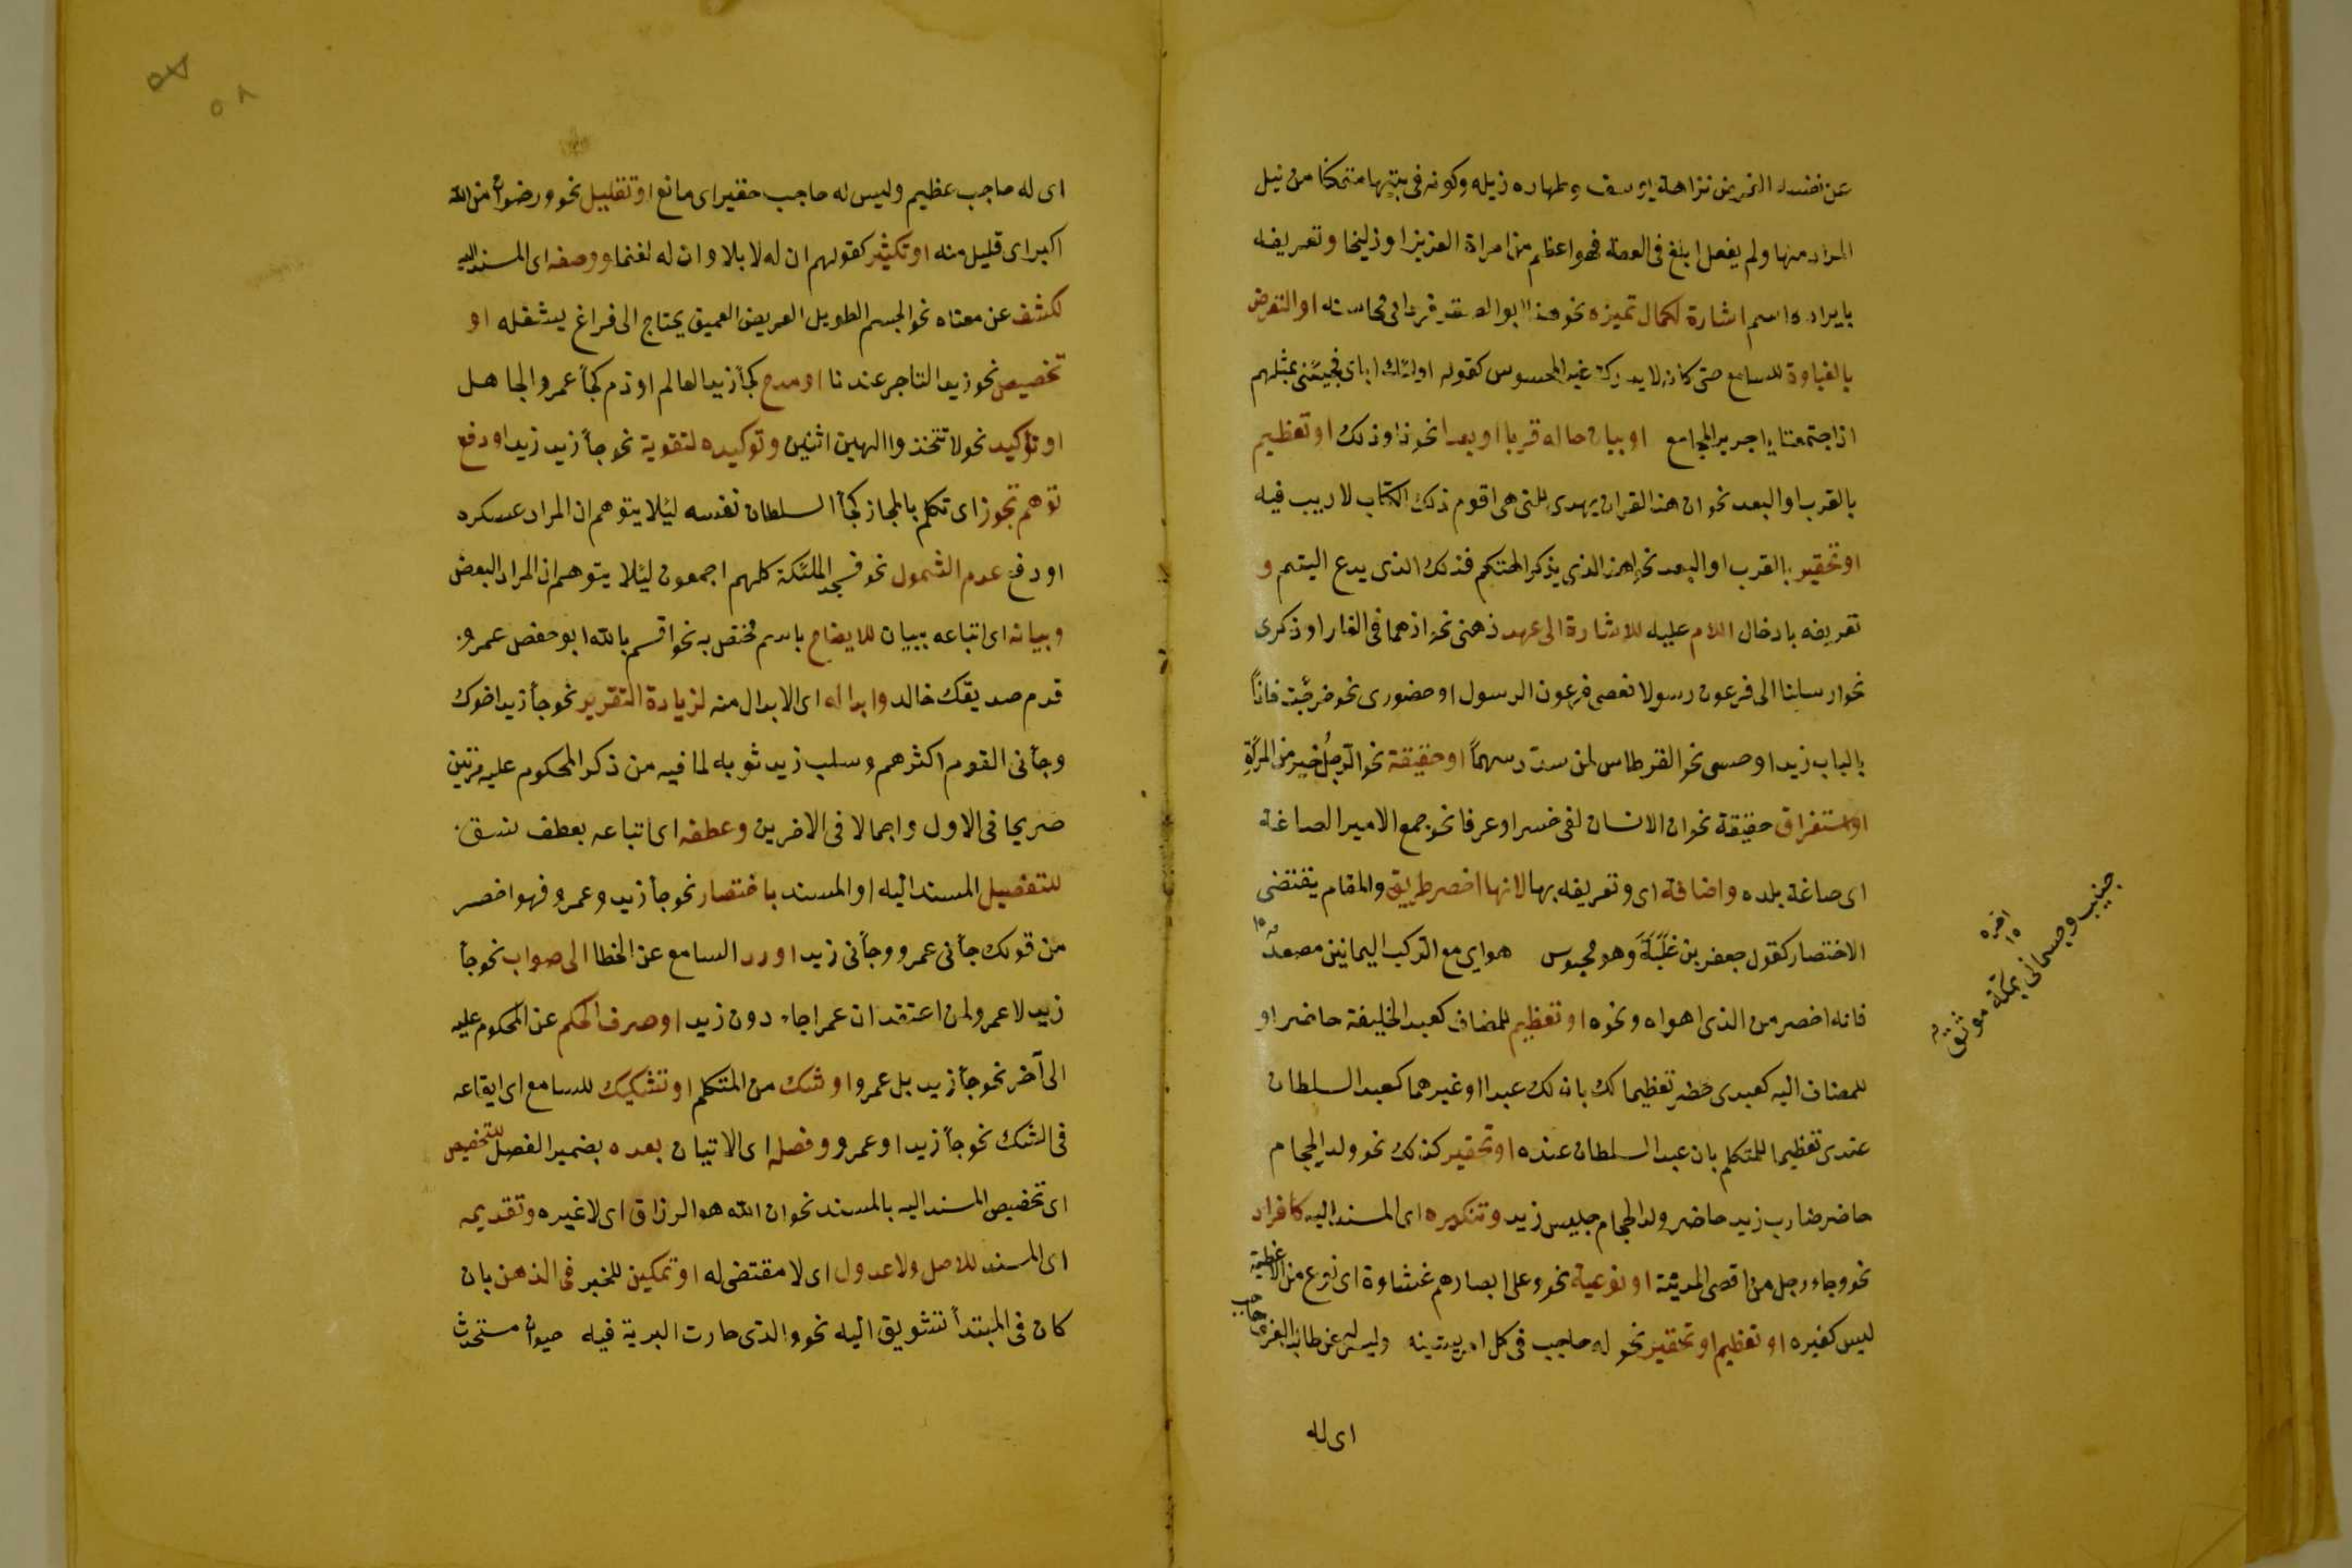 عن نفسه الغرض نزاهة يوسف وطهاره ذيله وكونه في بيتها متمكنا من نيل
المراد منها ولم يفعل ابلغ في العصة فهو اعظم من امراة العزيز او زليخا وتعريفه
بايراده اسم اشارة لكمال تميزه نحو هذا ابو الصقر فردا في محاسنه او التعرض
بالغباوة للسامع حتى كانه لا يدرك غير المحسوس كقوله اولئك اباى فجئني بمثلهم
اذا جتمعنا يا جرير المجامع او بيان حاله قربا او بعدا نحو ذا وذلك او تعظيم
بالقرب او البعد نحو ان هذا القران يهدى للتى هى اقوم ذلك الكتاب لا ريب فيه
او تحقير بالقرب او البعد نحو اهذا الذي يذكر الهتكم فذلك الذى يدع اليتيم و
تعريفه بادخال اللام عليه للاشارة الى عهد ذهنى نحو اذهما في الغار او ذكرى
نحو ارسلنا الى فرعون رسولا فعصى فرعون الرسول او حضورى نحو خرجت فاذا
بالباب زيد او حسى نحو القرطاس لمن سدد سهما او حقيقة نحو الرجل خير من المرأة
او استغراق حقيقة نحو ان الانسان لفى خسر او عرفا نحو جمع الامير الصاغة
اى صاغة بلده واضافة اى وتعريفه بها لانها اخصر طريق والمقام يقتضى
الاختصار كقول جعفر بن علبة وهو محبوس هواى مع الركب اليمانين مصعد
فانه اخصر من الذى اهواه ونحوه او تعظيم للمضاف كعبد الخليفة حاضر او
للمضاف اليه كعبدى حضر تعظيما لك بان لك عبدا او غيرهما كعبد السلطان
عندى تعظيما للمتكلم بان عبد السلطان عنده او تحقير كذلك نحو ولد الحجام
حاضر ضارب زيد حاضر ولد الحجام جليس زيد وتنكيره اى المسند اليه كافراد
نحو وجاء رجل من اقصى المدينة او نوعية نحو وعلى ابصارهم غشاوة اى نوع من الاغطية
ليس كغيره او تعظيم او تحقير نحو له حاجب في كل امر يشينه وليس له عن طالب العرف حاجب
اى له
جنيب وجسمانى بمكة موثق
اخره
اى له حاجب عظيم وليس له حاجب حقير اى مانع او تقليل نحو ورضوان من الله
اكبر اى قليل منه او تكثير كقولهم ان له لابلا وان له لغنما ووصفه اى المسند اليه
لكشف عن معناه نحو الجسم الطويل العريض العميق يحتاج الى فراغ يشغله او
تخصيص نحو زيد التاجر عندنا او مدح كجأ زيد العالم او ذم كجأ عمرو الجاهل
او تؤكيد نحو لا تتخذوا الهين اثنين وتوكيده لتقوية نحو جأ زيد زيد او دفع
توهم تجوز اى تكلم بالمجاز كجأ السلطان نفسه ليئلا يتوهم ان المراد عسكره
او دفع عدم الشمول نحو فسجد الملئكة كلهم اجمعون ليئلا يتوهم ان المراد البعض
وبيانه اى اتباعه ببيان للايضاح باسم مختص به نحو اقسم بالله ابو حفص عمرو
قدم صديقك خالد وابداله اى الابدال منه لزيادة التقرير نحو جأ زيد اخوك
وجأنى القوم اكثرهم وسلب زيد ثوبه لما فيه من ذكر المحكوم عليه مرتين
صريحا فى الاول واجمالا فى الاخرين وعطفه اى اتباعه بعطف نسق
للتفصيل المسند اليه او المسند باختصار نحو جأ زيد وعمرو فهو اخصر
من قولك جأنى عمرو وجأنى زيد او رد السامع عن الخطا الى صواب نحو جأ
زيد لا عمرو لمن اعتقد ان عمرا جاء دون زيد او صرف الحكم عن المحكوم عليه
الى آخر نحو جأ زيد بل عمرو او شك من المتكلم او تشكيك للسامع اى ايقاعه
فى الشك نحو جأ زيد او عمرو وفصله اى الاتيان بعده بضمير الفصل للتخصيص
اى تخصيص المسند اليه بالمسند نحو ان الله هو الرزاق اى لا غيره وتقديمه
اى المسند للاصل ولا عدول اى لا مقتضى له او تمكين للخبر فى الذهن بان
كان فى المبتدأ تشويق اليه نحو والذى حارت البرية فيه حيوان مستحدث
٥٨